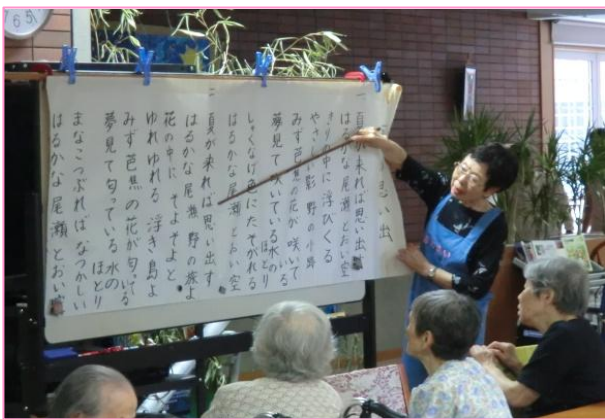 思い出
一 夏が来れば思い出す
はるかな尾瀬 とおい空
きりの中に 浮びくる
やさしい影 野の小路
みず芭蕉の花が 咲いている
夢見て咲いている水の ほとり
しゃくなげ色にたそがれる
はるかな尾瀬 とおい空
二 夏が来れば思い出す
はるかな尾瀬 野の旅よ
花の中に そよそよと
ゆれゆれる 浮き島よ
みず芭蕉の花が匂っている
夢見て匂っている水の ほとり
まなこつぶれば なつかしい
はるかな尾瀬 とおい空